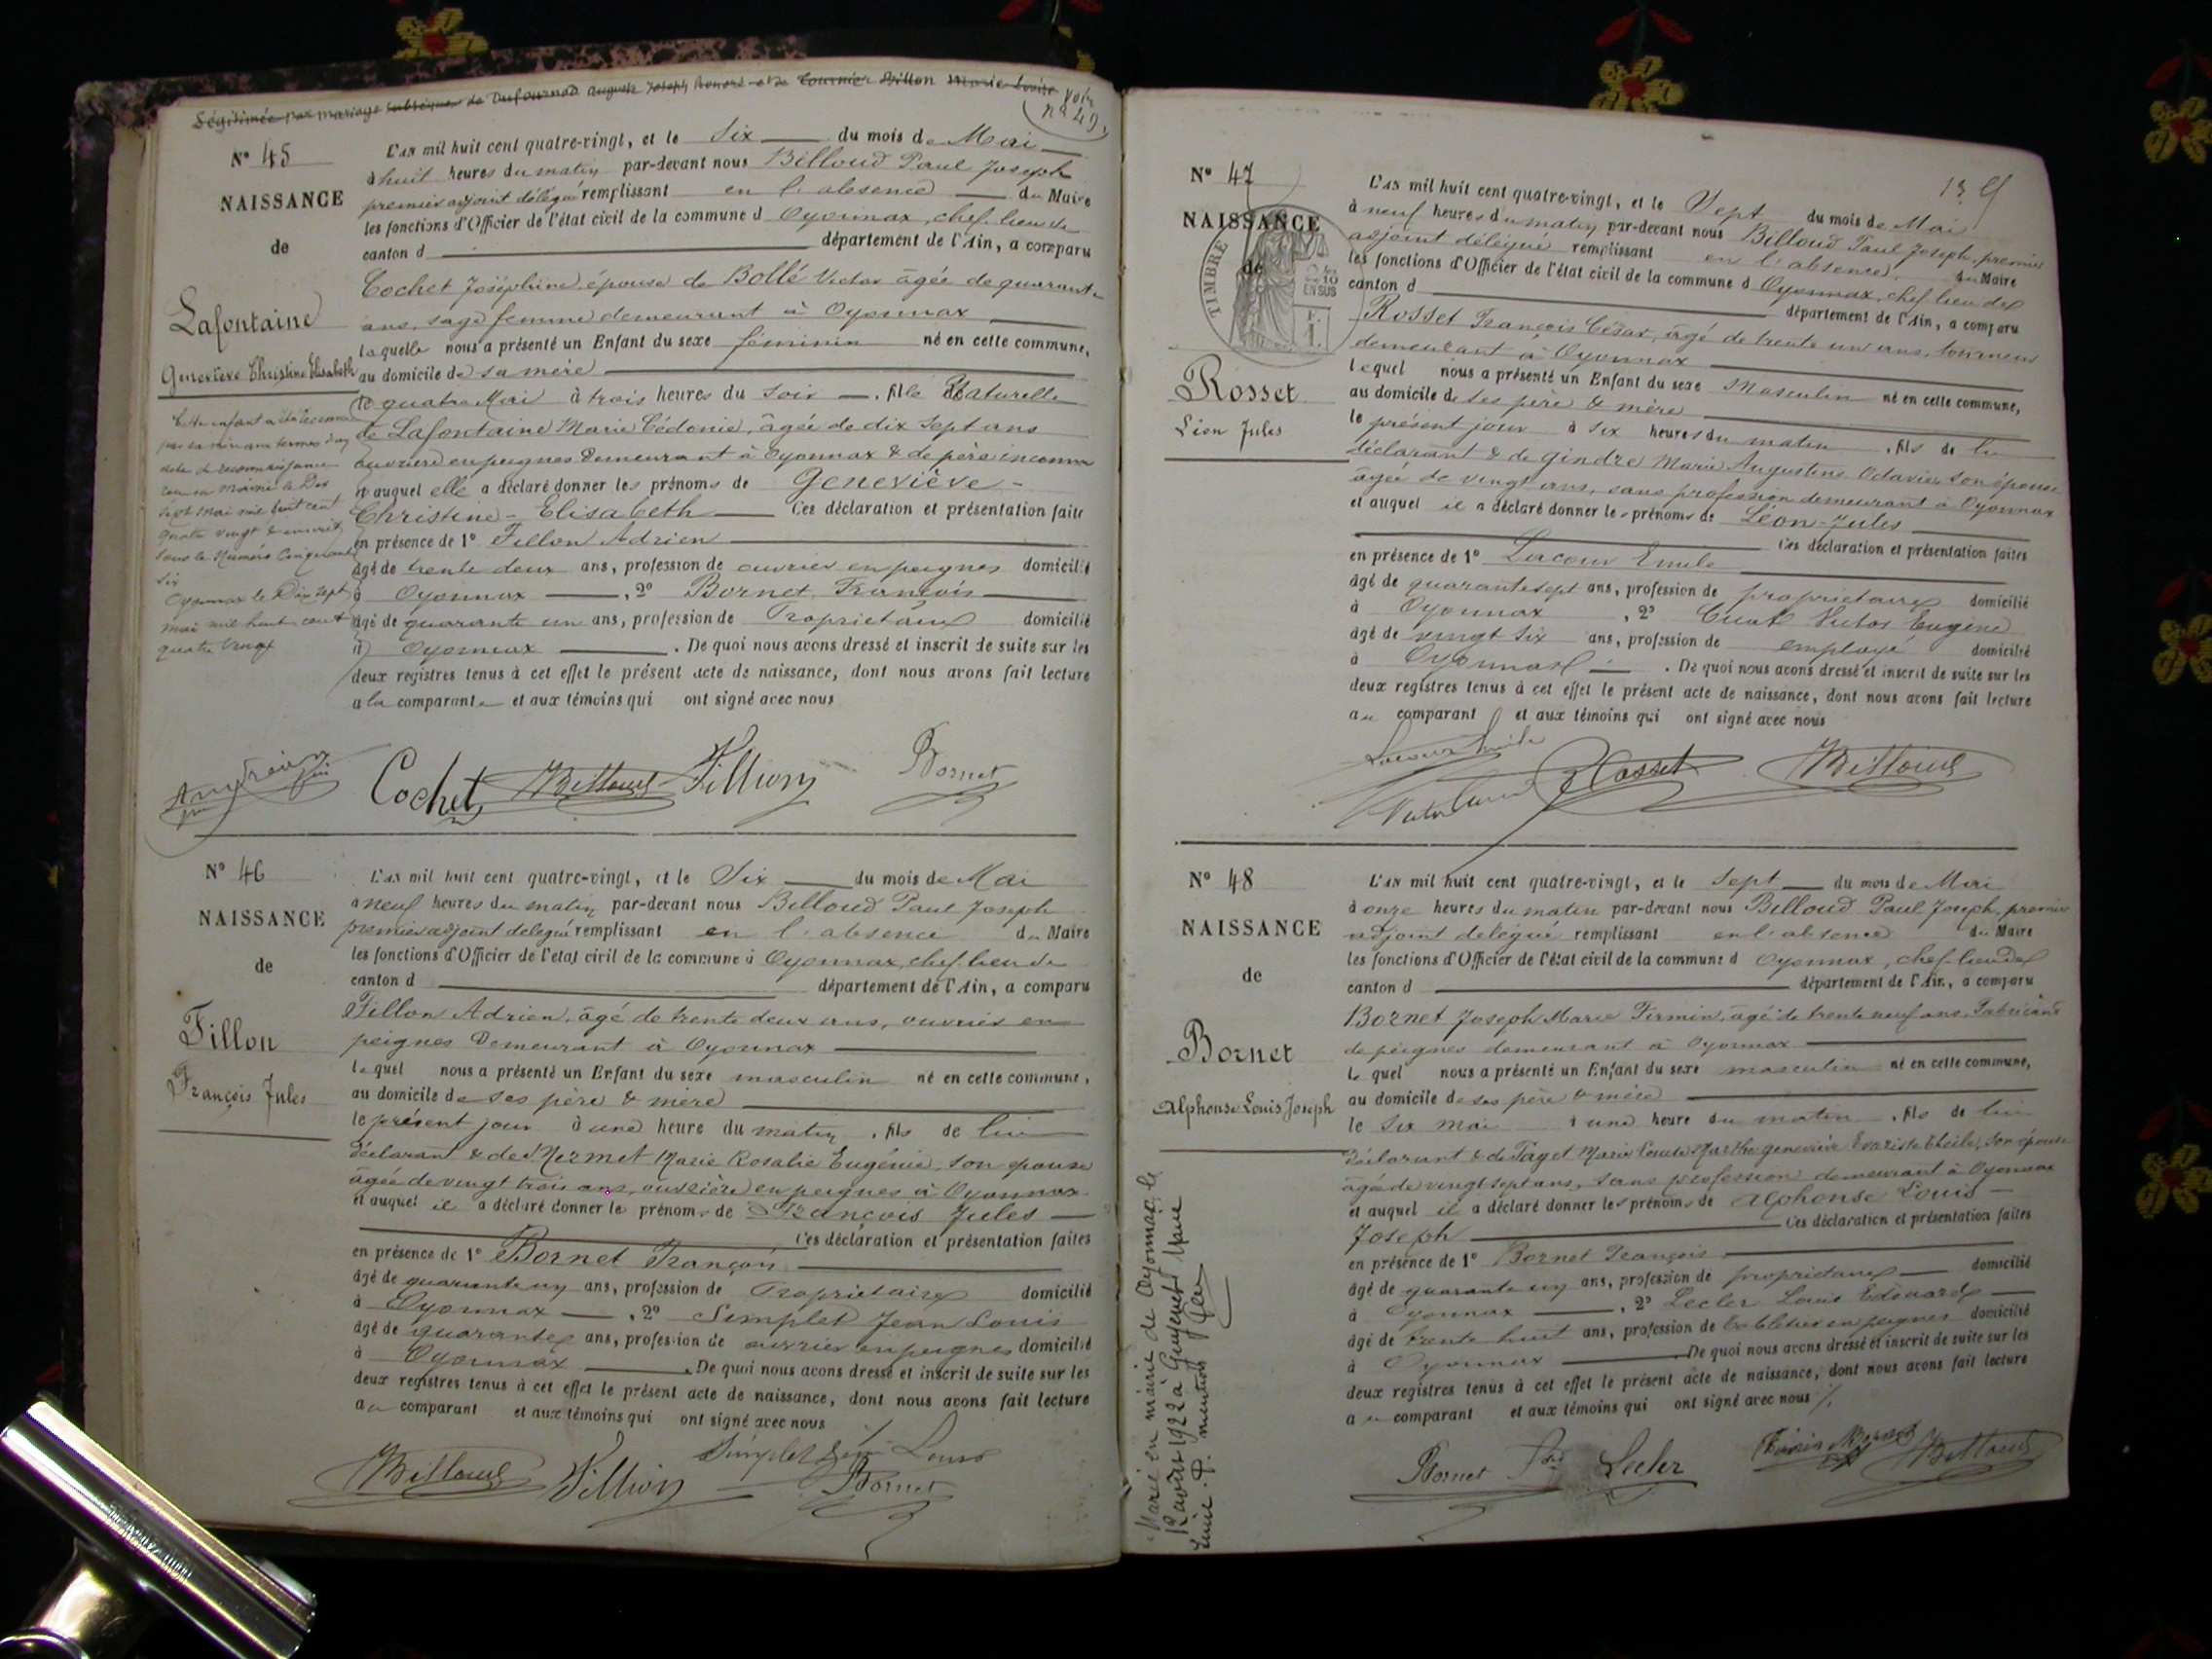 Légitimée par mariage subséquen de Dufournod Auguste Joseph Honoré et de Tournier Billon Marie Louise
Voir
n° 49
N° 45
NAISSANCE
de
Lafontaine
Geneviève Christine Elisabeth
Cette enfant a été reconnue
par sa mère aux termes d'un
acte de reconnaissance
reçu en mairie le Dix
sept mai mil huit cent
quatre vingt & inscrit
sous le Numéro Cinquante
Six
Oyonnax le Dix sept
mai mil huit cent
quatre vingt
L'an mil huit cent quatre-vingt, et le Six du mois de Mai
à huit heures du matin par-devant nous Billoud Paul Joseph
premier adjoint délégué remplissant en l'absence du Maire
les fonctions d'Officier de l'état civil de la commune d Oyonnax, chef-lieu de
canton d département de l'Ain, a comparu
Cochet Joséphine, épouse de Bollé Victor âgée de quarante
ans, sage femme demeurant à Oyonnax
laquelle nous a présenté un Enfant du sexe féminin né en cette commune,
au domicile de sa mère
le quatre Mai à trois heures du soir, fille Naturelle
de Lafontaine Marie Cédonie, âgée de dix sept ans
ouvrière en peignes demeurant à Oyonnax & de père inconnu
et auquel elle a déclaré donner les prénoms de Geneviève -
Christine - Elisabeth Ces déclaration et présentation faite
en présence de 1° Fillon Adrien
âgé de trente deux ans, profession de ouvrier en peignes domicilié
à Oyonnax, 2° Bornet François
âgé de quarante un ans, profession de Propriétaire domicilié
à Oyonnax. De quoi nous avons dressé et inscrit de suite sur les
deux registres tenus à cet effet le présent acte de naissance, dont nous avons fait lecture
a la comparante et aux témoins qui ont signé avec nous
Cochet Billoud Fillion Bornet
N° 46
NAISSANCE
de
Fillon
François Jules
L'an mil huit cent quatre-vingt, et le Six du mois de Mai
à neuf heures du matin par-devant nous Billoud Paul Joseph
premier adjoint délégué remplissant en l'absence du Maire
les fonctions d'Officier de l'état civil de la commune d Oyonnax, chef-lieu de
canton d département de l'Ain, a comparu
Fillon Adrien, âgé de trente deux ans, ouvrier en
peignes demeurant à Oyonnax
lequel nous a présenté un Enfant du sexe masculin né en cette commune,
au domicile de ses père & mère
le présent jour à une heure du matin, fils de lui
déclarant & de Mermet Marie Rosalie Eugénie, son épouse
âgée de vingt trois ans, ouvrière en peignes à Oyonnax
et auquel il a déclaré donner les prénoms de François Jules
Ces déclaration et présentation faites
en présence de 1° Bornet François
âgé de quarante un ans, profession de Propriétaire domicilié
à Oyonnax, 2° Simplet Jean Louis
âgé de quarante ans, profession de ouvrier en peignes domicilié
à Oyonnax. De quoi nous avons dressé et inscrit de suite sur les
deux registres tenus à cet effet le présent acte de naissance, dont nous avons fait lecture
au comparant et aux témoins qui ont signé avec nous
Simplet Jean Louis
Billoud Fillion Bornet
13
N° 47
NAISSANCE
de
TIMBRE
2/10
EN SUS
Rosset
Léon Jules
L'an mil huit cent quatre-vingt, et le Sept du mois de Mai
à neuf heures du matin par-devant nous Billoud Paul Joseph, premier
adjoint délégué remplissant en l'absence du Maire
les fonctions d'Officier de l'état civil de la commune d Oyonnax, chef-lieu de
canton d département de l'Ain, a comparu
Rosset François César, âgé de trente un ans, tourneur
demeurant à Oyonnax
lequel nous a présenté un Enfant du sexe Masculin né en cette commune,
au domicile de ses père & mère
le présent jour à six heures du matin, fils de lui
déclarant & de Gindre Marie Augustine Octavie, son épouse
âgée de vingt ans, sans profession demeurant à Oyonnax
et auquel il a déclaré donner les prénoms de Léon-Jules
Ces déclaration et présentation faites
en présence de 1° Lacour Emile
âgé de quarante sept ans, profession de propriétaire domicilié
à Oyonnax, 2° Cuat Victor Eugène
âgé de vingt six ans, profession de employé domicilié
à Oyonnax. De quoi nous avons dressé et inscrit de suite sur les
deux registres tenus à cet effet le présent acte de naissance, dont nous avons fait lecture
au comparant et aux témoins qui ont signé avec nous
Lacour Emile Rosset Billoud
N° 48
NAISSANCE
de
Bornet
Alphonse Louis Joseph
Marié en mairie de Oyonnax le
12 août 1922 à Guyenet Marie
mention
L'an mil huit cent quatre-vingt, et le Sept du mois de Mai
à onze heures du matin par-devant nous Billoud Paul Joseph, premier
adjoint délégué remplissant en l'absence du Maire
les fonctions d'Officier de l'état civil de la commune d Oyonnax, chef-lieu de
canton d département de l'Ain, a comparu
Bornet Joseph Marie Firmin, âgé de trente neuf ans, Fabricant
de peignes demeurant à Oyonnax
lequel nous a présenté un Enfant du sexe masculin né en cette commune,
au domicile de ses père & mère
le six mai à une heure du matin, fils de lui
déclarant & de Paget Marie Louise Marthe geneviève Evariste son épouse
âgée de vingt sept ans, sans profession demeurant à Oyonnax
et auquel il a déclaré donner les prénoms de Alphonse Louis -
Joseph Ces déclaration et présentation faites
en présence de 1° Bornet François
âgé de quarante un ans, profession de propriétaire domicilié
à Oyonnax, 2° Lecler Louis Edouard
âgé de trente huit ans, profession de en peignes domicilié
à Oyonnax De quoi nous avons dressé et inscrit de suite sur les
deux registres tenus à cet effet le présent acte de naissance, dont nous avons fait lecture
au comparant et aux témoins qui ont signé avec nous
Bornet Lecler Firmin Bornet Billoud